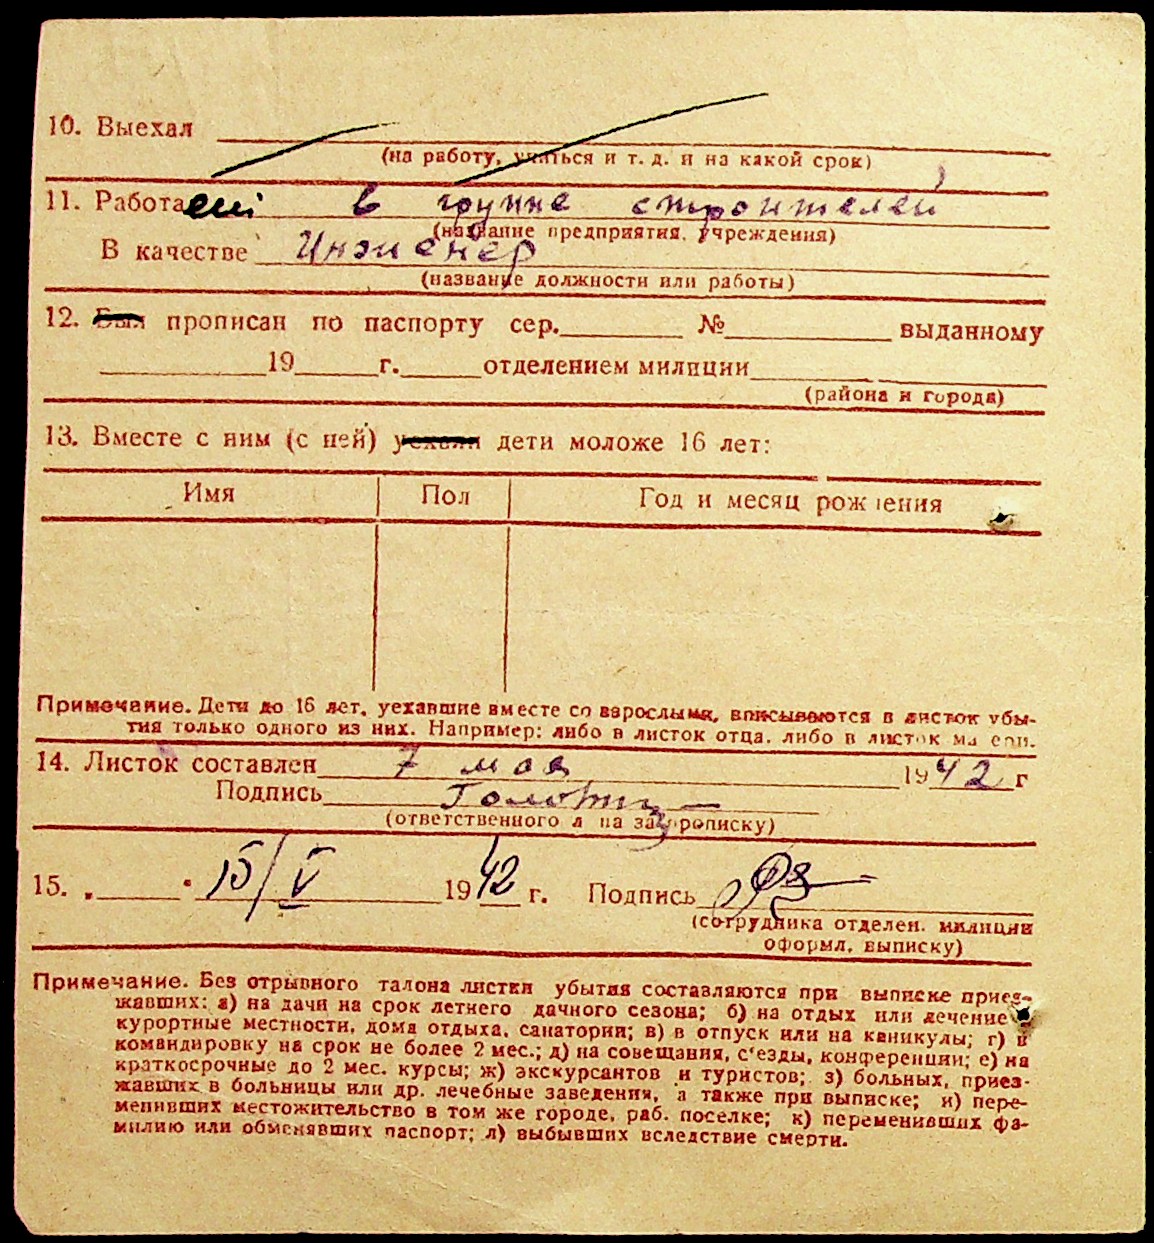 10. Выехал
(на работу, учиться и т. д. и на какой срок)
11. Работает в группе строителей
(название предприятия, учреждения)
В качестве Инженер
(название должности или работы)
12. Был прописан по паспорту сер. № выданному
19 г. отделением милиции
(района и города)
13. Вместе с ним (с ней) уехали дети моложе 16 лет:
Имя Пол Год и месяц рождения
Примечание. Дети до 16 лет, уехавшие вместе со взрослыми, вписываются в листок убы-
тия только одного из них. Например: либо в листок отца, либо в листок матери.
14. Листок составлен 7 мая 1942 г
Подпись
(ответственного л на за прописку)
15. „ " 15/V 1942 г. Подпись
(сотрудника отделен. милиции
оформл. выписку)
Примечание. Без отрывного талона листки убытия составляются при выписке приез-
жавших: а) на дачи на срок летнего дачного сезона; б) на отдых или лечение в
курортные местности, дома отдыха, санатории; в) в отпуск или на каникулы; г) в
командировку на срок не более 2 мес.; д) на совещания, с'езды, конференции; е) на
краткосрочные до 2 мес. курсы; ж) экскурсантов и туристов; з) больных, приез-
жавших в больницы или др. лечебные заведения, а также при выписке; и) пере-
менивших местожительство в том же городе, раб. поселке; к) переменивших фа-
милию или обменявших паспорт; л) выбывших вследствие смерти.